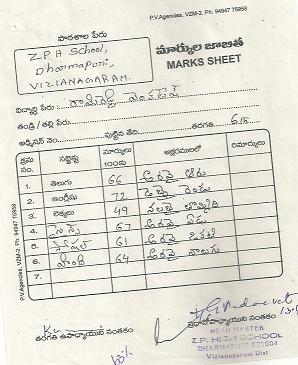 P.V.Agencies, VZM-2. Ph: 94947 75958
పాఠశాల పేరు
Z.P.H School,
Dharmapuri,
VIZIANAGARAM.
మార్కుల జాబితా
MARKS SHEET
విద్యార్థి పేరు : రామిరెడ్డి వెంకటేష్
తండ్రి / తల్లి పేరు :
అడ్మిషన్ నెం. పుట్టిన తేది. తరగతి. 6th
క్రమ సం. సబ్జెక్టు మార్కులు 100కు అక్షరములలో రిమార్కులు
1. తెలుగు 66 అరవై ఆరు
2. ఇంగ్లీషు 72 డెబ్బై రెండు
3. లెక్కలు 49 నలభై తొమ్మిది
4. సైన్స్ 67 అరవై ఏడు
5. సోషల్ 61 అరవై ఒకటి
6. హిందీ 64 అరవై నాలుగు
7.
P.V.Agencies, VZM-2. Ph: 94947 75958
తరగతి ఉపాధ్యాయుని సంతకం
ప్రధానోపాధ్యాయుని సంతకం
HEAD MASTER
Z.P. HIGH SCHOOL
DHARMAPURI-535004
Vizianagaram Dist